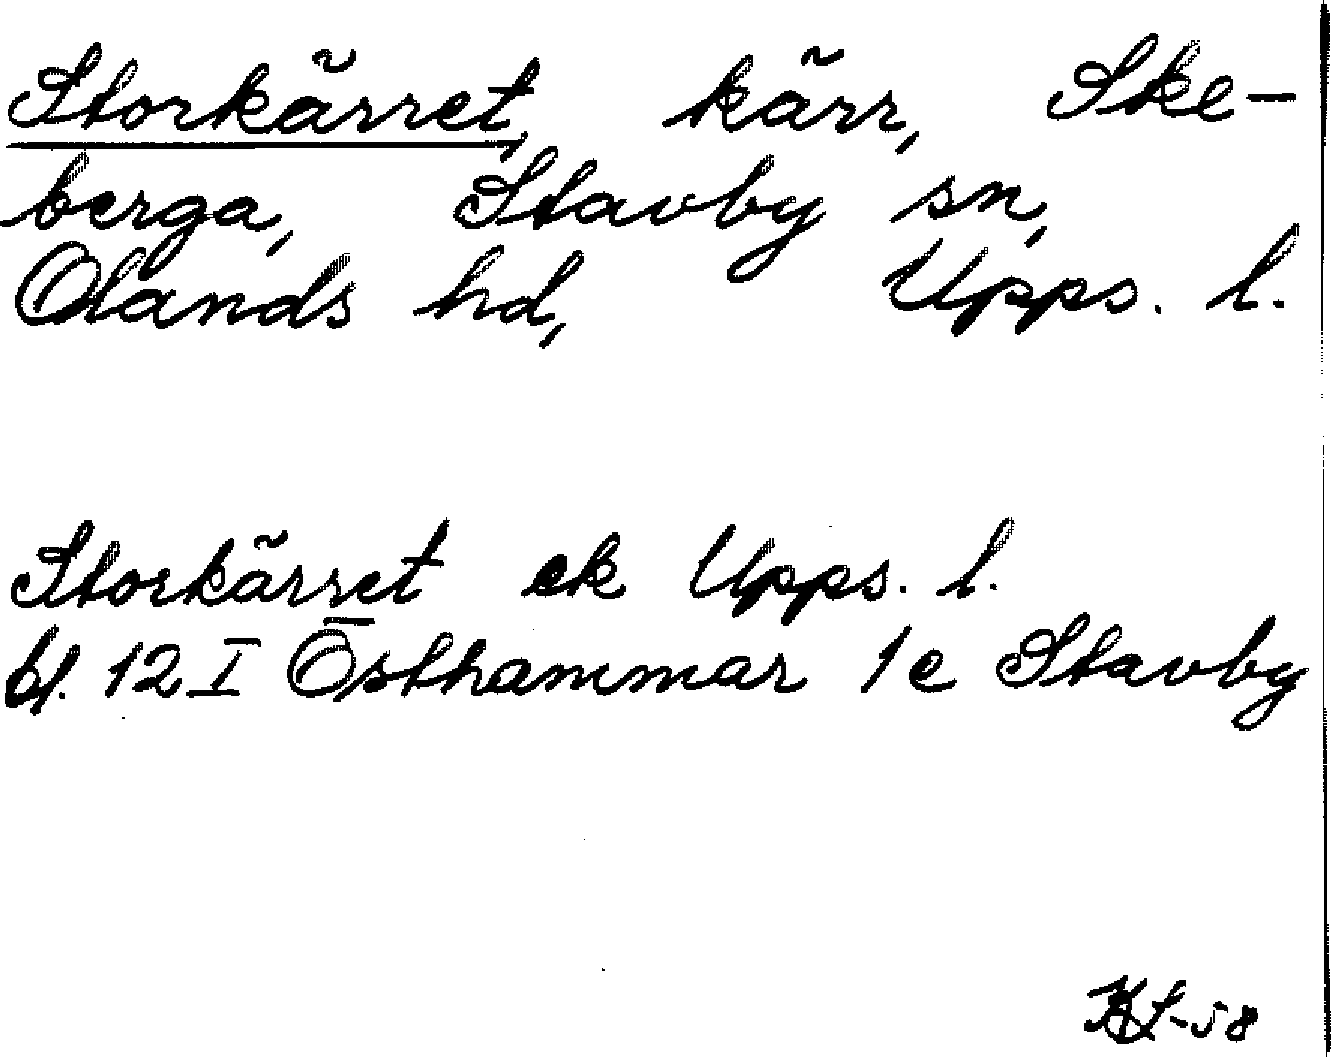 Storkärret, kärr, Ske-
berga, Stavby sn,
Olands hd, Upps. l.
Storkärret ek Upps. l.
bl. 12 I Östhammar 1e Stavby
-58